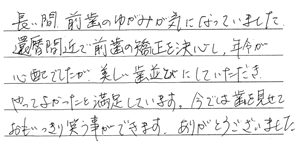 長い間、前歯のゆがみが気になっていました。
還暦間近で前歯の矯正を決心し、年令が
心配でしたが、美しい歯並びにしていただき、
やってよかったと満足しています。今では歯を見せて
おもいっきり笑う事ができます。ありがとうございました。